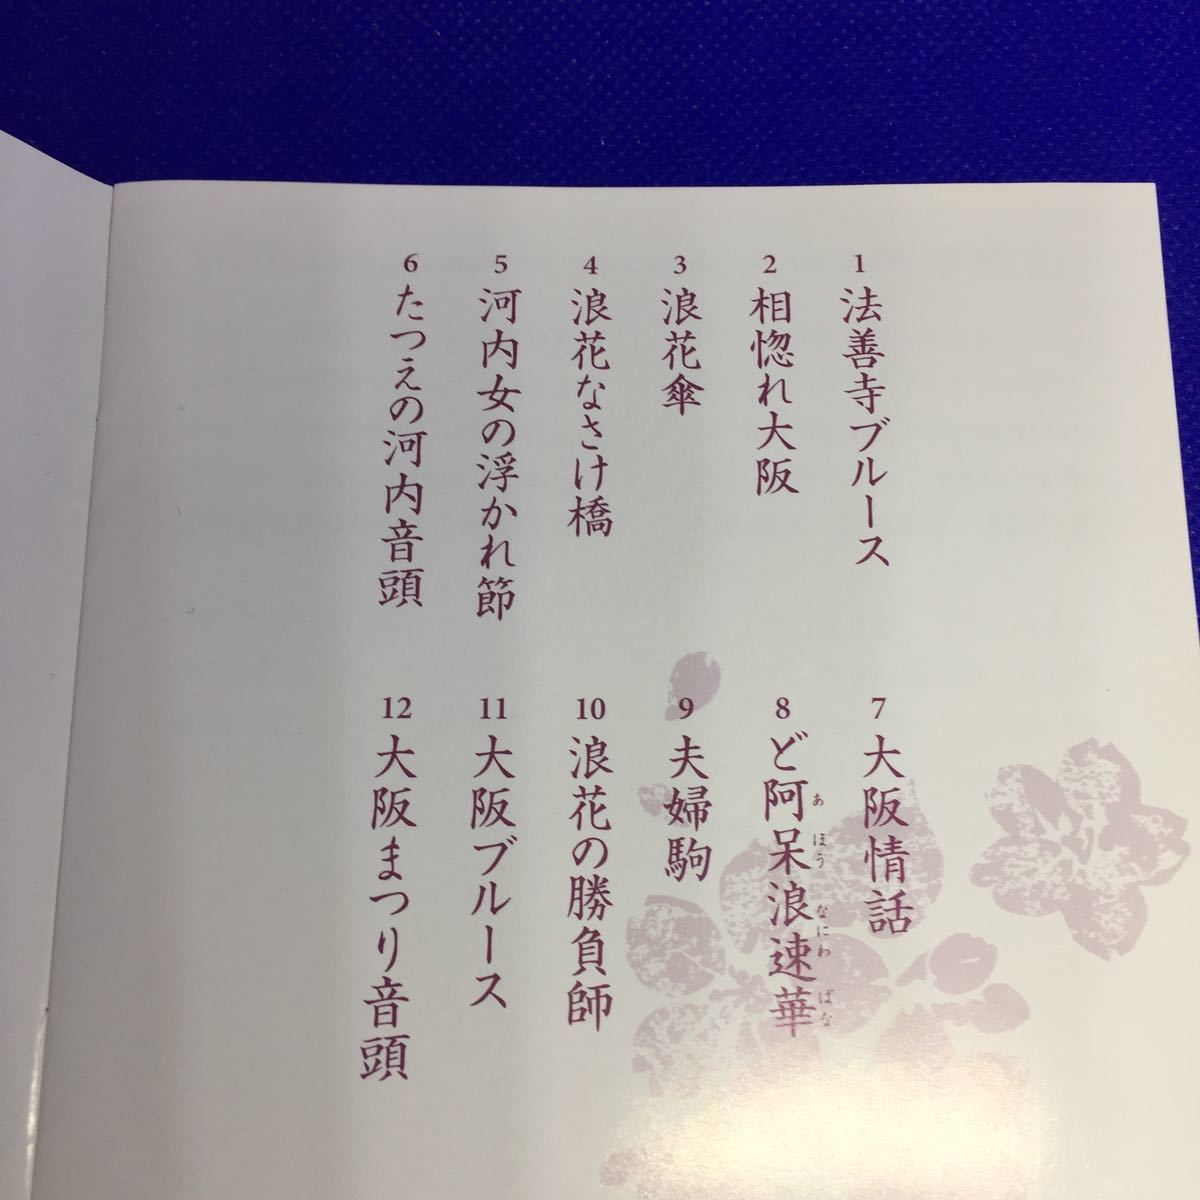 1 法善寺ブルース
2 相惚れ大阪
3 浪花傘
4 浪花なさけ橋
5 河内女の浮かれ節
6 たつえの河内音頭
7 大阪情話
8 ど阿呆浪速華
あ ほう なにわ ばな
9 夫婦駒
10 浪花の勝負師
11 大阪ブルース
12 大阪まつり音頭